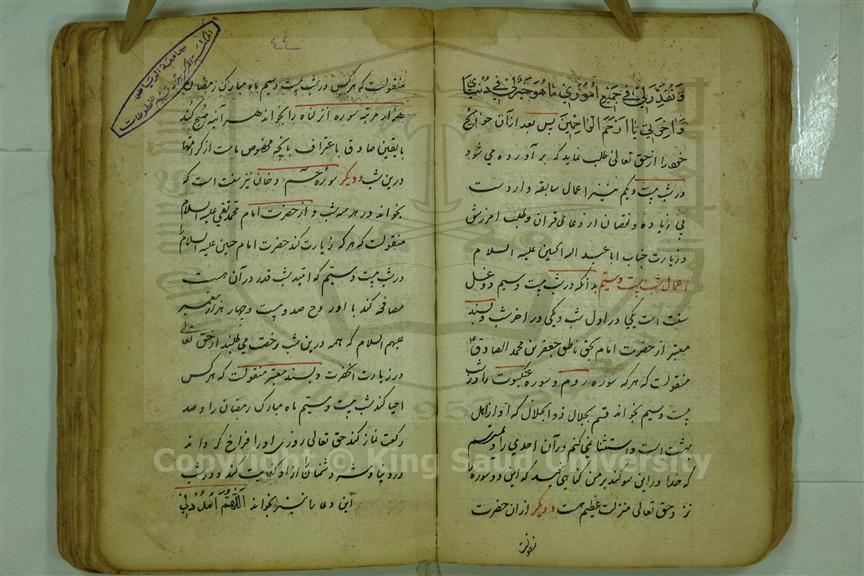 وَتُقَدِّرَ لِي فِي جَمِيعِ اُمُورِي مَا هُوَ خَيْرٌ لِي فِي دُنْيَايَ
وَاٰخِرَتِي يَا اَرْحَمَ الرَّاحِمِينَ پس بعد از آن حوائج
خود را از حق تعالی طلب نماید که برآورده می شود
در شب بیست و یکم نیز اعمال سابقه وارد است
بی زیاده و نقصان از دعای قرآن و طلب آمرزش
و زیارت جناب ابا عبد الله الحسین علیه السلام
اعمال شب بیست و سیم بدانکه در شب بیست و سیم دو غسل
سنت است یکی در اول شب و یکی در آخر شب و بسند
معتبر از حضرت امام بحق ناطق جعفر بن محمد الصادق
منقولست که هر که سوره روم و سوره عنکبوت را در شب
بیست و سیم بخواند قسم بجلال ذو الجلال که او از اهل
بهشت است و استثنا نمی کنم در آن احدی را و نمی ترسم
که خدا در این سوگند بر من گناهی نویسد که این دو سوره را
نزد حق تعالی منزلت عظیم هست و دیگر از آن حضرت
٤٤
منقولست که هر کس در شب بیست و سیم ماه مبارک رمضان
هزار مرتبه سوره انا انزلناه را بخواند هر آینه صبح کند
با یقین صادق باعتراف بانچه مخصوص ماست از کرامتها
درین شب و دیگر سوره حم دخان نیز سنت است که
بخواند در هر سه شب و از حضرت امام محمد تقی علیه السلام
منقولست که هر که زیارت کند حضرت امام حسین علیه السلام
در شب بیست و سیم که امید شب قدر در آن هست
مصافحه کند با او روح صد و بیست و چهار هزار پیغمبر
علیهم السلام که همه درین شب رخصت می طلبند از حق تعالی
در زیارت آنحضرت و بسند معتبر منقولست که هر کس
احیا کند شب بیست و سیم ماه مبارک رمضان را و صد
رکعت نماز کند حق تعالی روزی او را فراخ کرداند
در دنیا و شر دشمنان از او کفایت کند و در شب
این دعا را نیز بخواند اَللّٰهُمَّ امْدُدْ لِي
جامعة الرياض
Copyright © King Saud University